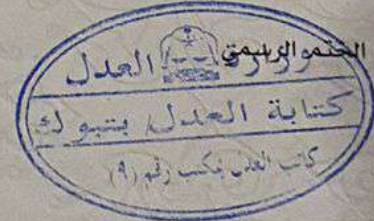 الختم الرسمي
وزارة العدل
كتابة العدل بتبوك
كاتب العدل بمكتب رقم (٩)